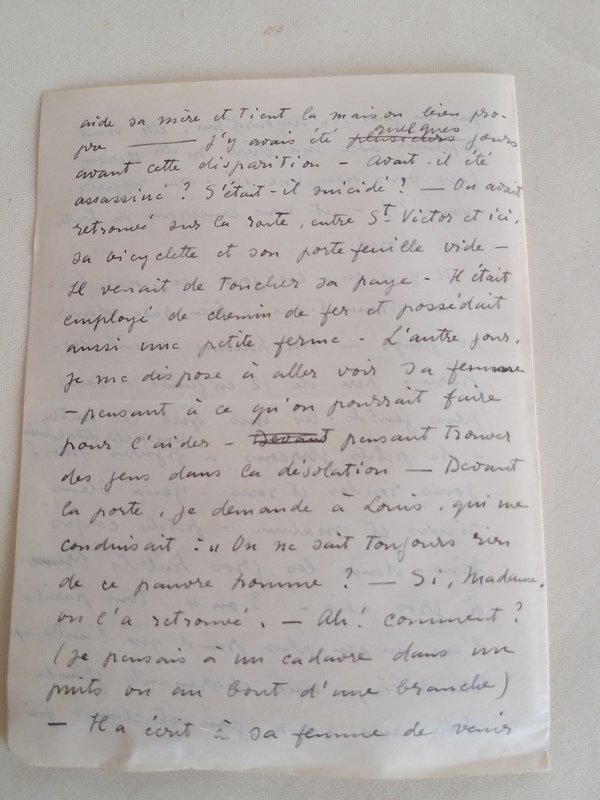 aide sa mère et tient la maison bien pro-
pre ——— J'y avais été plusieurs quelques jours
avant cette disparition - Avait-il été
assassiné ? S'était-il suicidé ? — On avait
retrouvé sur la route, entre St Victor et ici,
sa bicyclette et son portefeuille vide -
Il venait de toucher sa paye - Il était
employé de chemin de fer et possédait
aussi une petite ferme - L'autre jour,
je me dispose à aller voir sa femme
- pensant à ce qu'on pourrait faire
pour l'aider - Devant pensant trouver
des gens dans la désolation — Devant
la porte, je demande à Louis, qui me
conduisait : " On ne sait toujours rien
de ce pauvre homme ? — Si, Madame,
on l'a retrouvé. — Ah ! comment ?
(Je pensais à un cadavre dans un
puits ou au bout d'une branche)
— Il a écrit à sa femme de venir